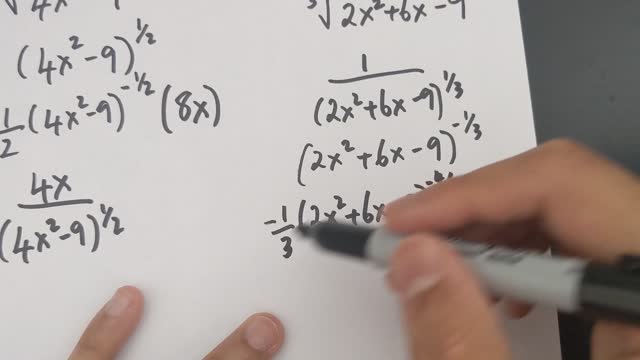 √4x²
(4x²-9)^1/2
1/2 (4x²-9)^-1/2 (8x)
4x
(4x²-9)^1/2
³√2x²+6x-9
1
(2x²+6x-9)^1/3
(2x²+6x-9)^-1/3
-1/3 (2x²+6x